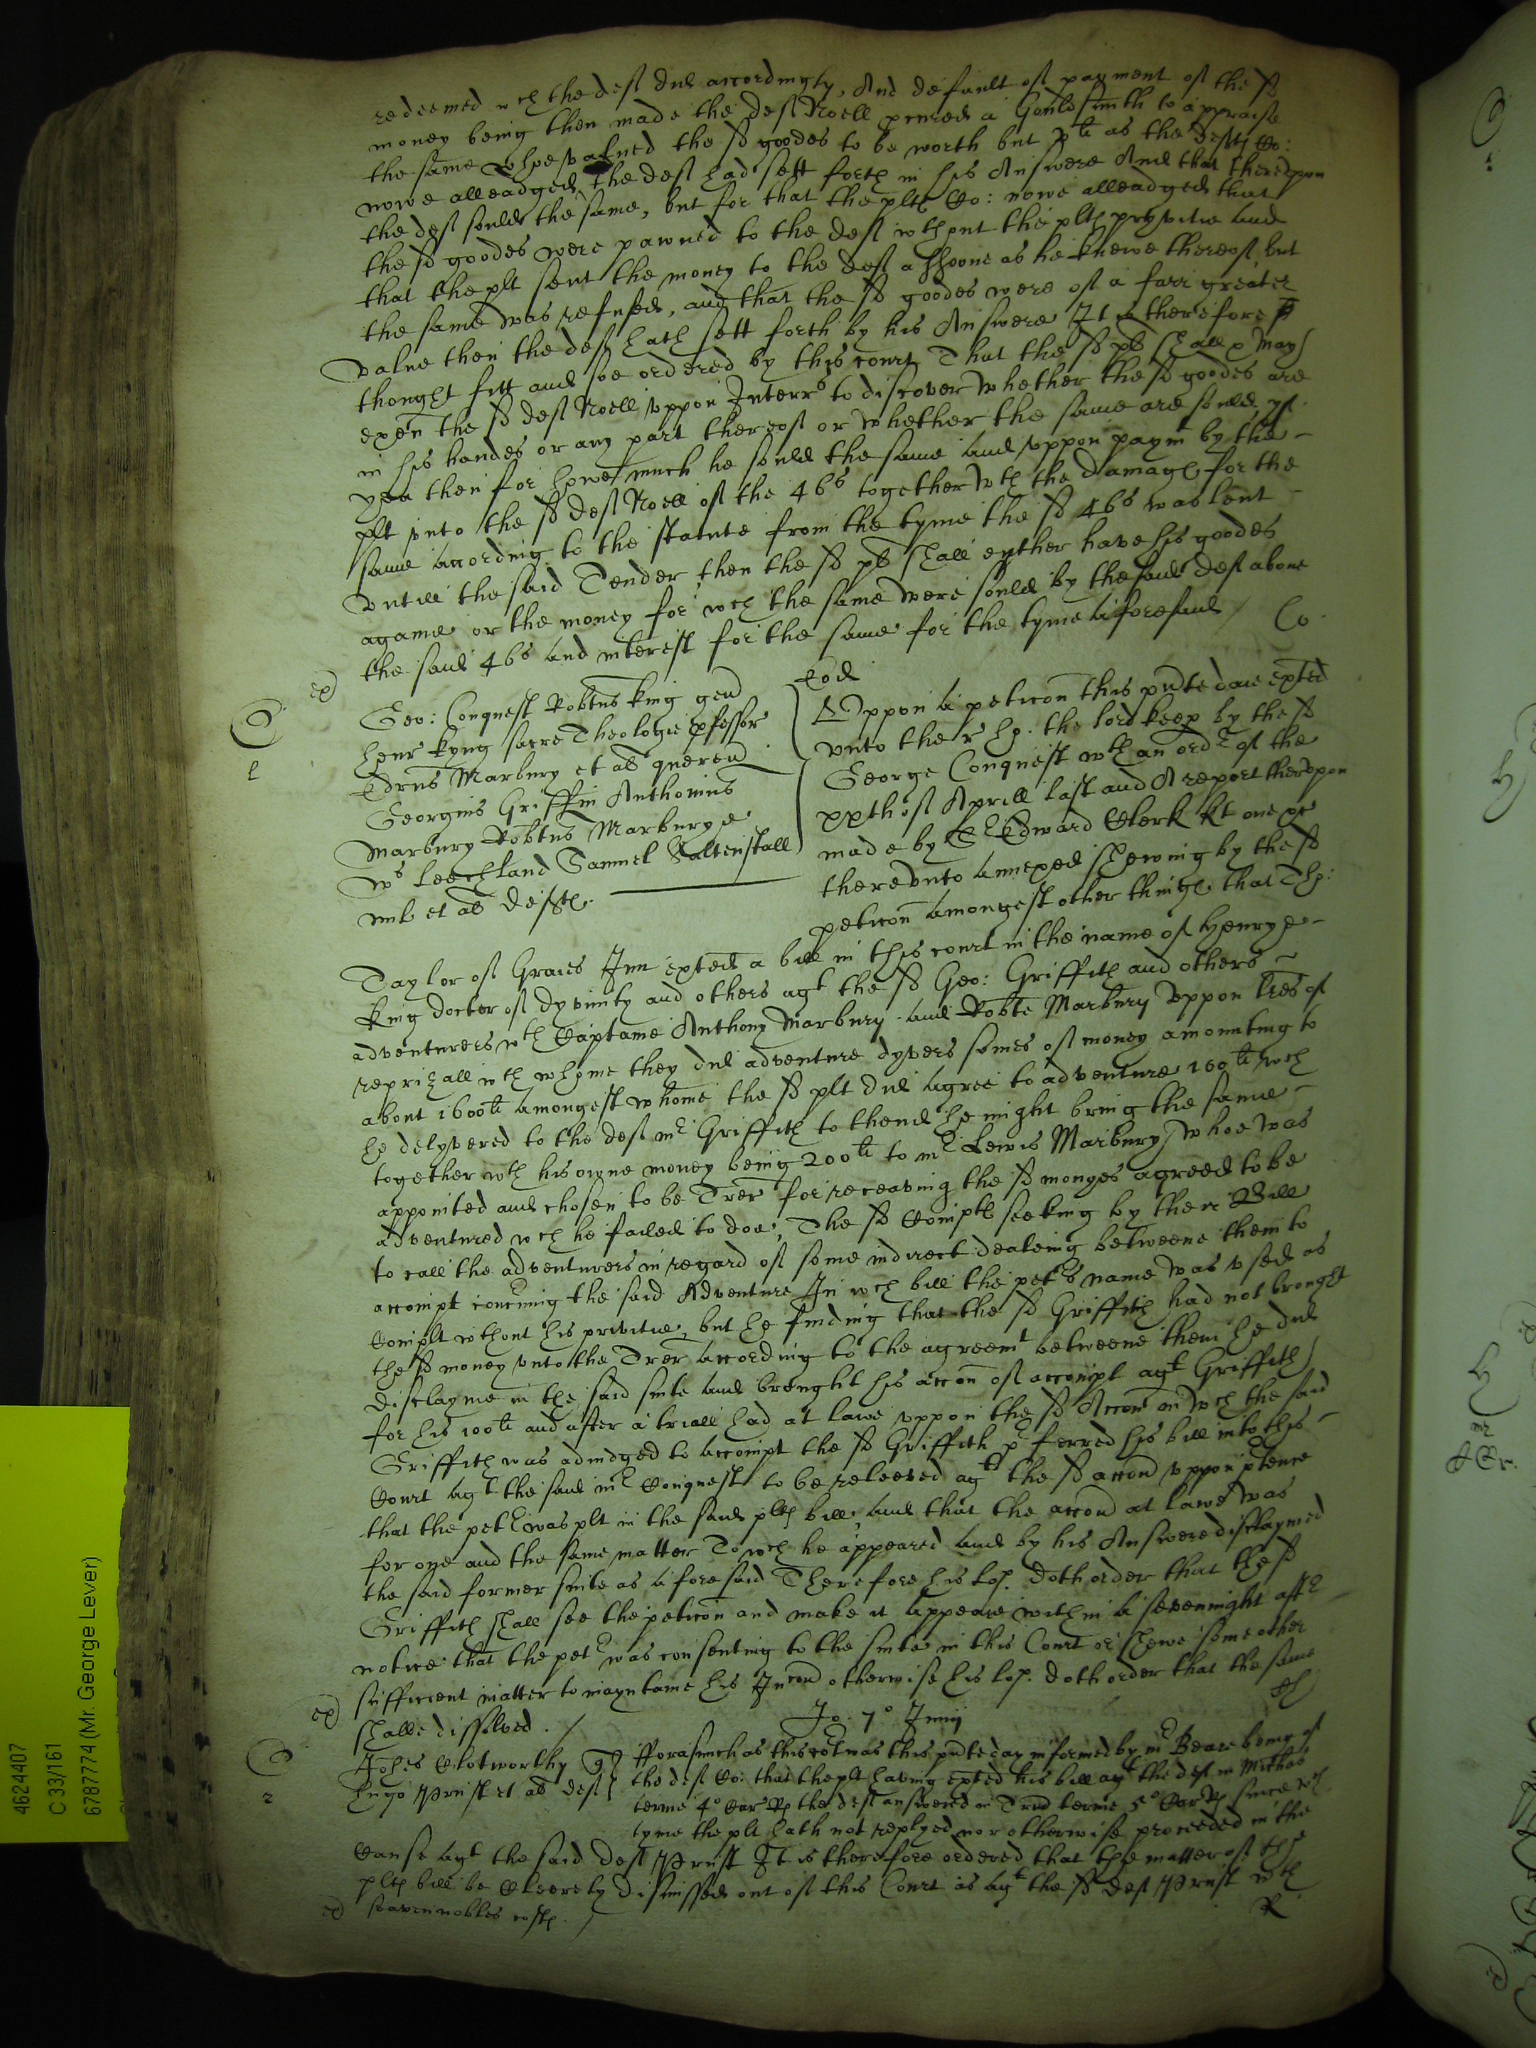 redeemed wch the deft did accordingly, And default of payment of the sd
money being then made the deft Noell procured a Gouldsmith to appraise
the same whoe valued the sd goodes to be worth but vli as the defts Co:
nowe alleadged, the deft had sett forth in his Answere And that thereupon
the deft sould the same, but for that the plts Co: nowe alleadged that
the sd goodes were pawned to the deft wthout the plts pryvitie and
that the plt sent the money to the deft assoone as he knewe thereof but
the same was refused, and that the sd goodes were of a farr greater
value then the deft hath sett forth by his Answere It is therefore
thought fitt and soe ordered by this court That the sd plt shall
exen the sd deft Noell uppon Interrs to discover whether the sd goodes are
in his handes or any part thereof or whether the same are sould, yf
yea then for howe much he sould the same and uppon paymt by the
plt unto the sd deft Noell of the 46s together wth the damags for the
same according to the statute from the tyme the sd 46s was lent
untill the said Tender then the sd plt shall eyther have his goodes
againe or the money for wch the same were sould by the said deft above
the said 46s and interest for the same for the tyme aforesaid / Co
ex
Geo: Conquest Robtus King gen
Henr Kyng sacre Theologie pfessor
Edrus Marbury et al queren
Georgius Griffin Anthonius
Marbury Robtus Marburye
Ws Leechland Samuel Saltenstall
mil et al defts.
Eod
Uppon a peticon this pnte daie exted
unto the r hp. the lord keep by the sd
George Conquest wth an ordr of the
xxth of Aprill last and A report therupon
made by Sr Edward Clerk kt one &c
thereunto annexed shewing by the sd
peticon amongest other things that Tho:
Taylor of Graies Inn exted a bill in this court in the name of Henrye
King doctor of dyvinity and others agt the sd Geo: Griffith and others
adventurers wth Captaine Anthony Marbury and Robte Marbury uppon lres of
reprizall wth whome they did adventure dyvers somes of money amounting to
about 1600li amongest whome the sd plt did agree to adventure 100li wch
he delyvered to the deft mr Griffith to thend he might bring the same
together wth his owne money being 200li to mr Lewis Marbury whoe was
appointed and chosen to be Trer for receaving the sd monyes agreed to be
adventured wch he failed to doe, The sd Complts seeking by their Bill
to call the adventurers in regard of some indirect dealeing betweene them to
accompt concning the said Adventure In wch bill the petrs name was used as
Complt wthout his privitie, but he finding that the sd Griffith had not brought
the sd money unto the Trer according to the agreemt betweene them he did
disclayme in the said suite and brought his accon of accompt agt Griffith
for his 100li and after a triall had at lawe uppon the sd Accon in wch the said
Griffith was adiudged to accompt the sd Griffith pferred his bill into this
Court agt the said mr Conquest to be releeved agt the sd accon uppon ptence
that the petr was plt in the said plts bill, and that the accon at lawe was
for one and the same matter To wch he appeared and by his Answere disclaymed
the said former suite as aforesaid Therefore his lop. doth order that the sd
Griffith shall see the peticon and make it appeare within a sevenight aftr
notice that the petr was consenting to the suite in this Court or shewe some other
sufficient matter to mayntaine his Incon otherwise his lop. doth order that the same
shalbe dissolved . /
ex
Jo. 7o Junij
Johes Clotworthy q
Hugo Prust et al defts
fforasmuch as this Cot was this pnte day informed by mr Beare being of
the deft Co: that the plt having exted his bill agt the deft in Michas
terme 4o Car Rs the deft answered in Trin terme 5o Car Rs since wch
tyme the plt hath not replyed nor otherwise proceeded in the
Cause agt the said deft Prust It is therefore ordered that the matter of the
plts bill be Cleerely dismissed out of this Court as agt the sd deft Prust wth
seaven nobles costs. /
R
ex
4624407
C 33/161
6787774 (Mr. George Lever)